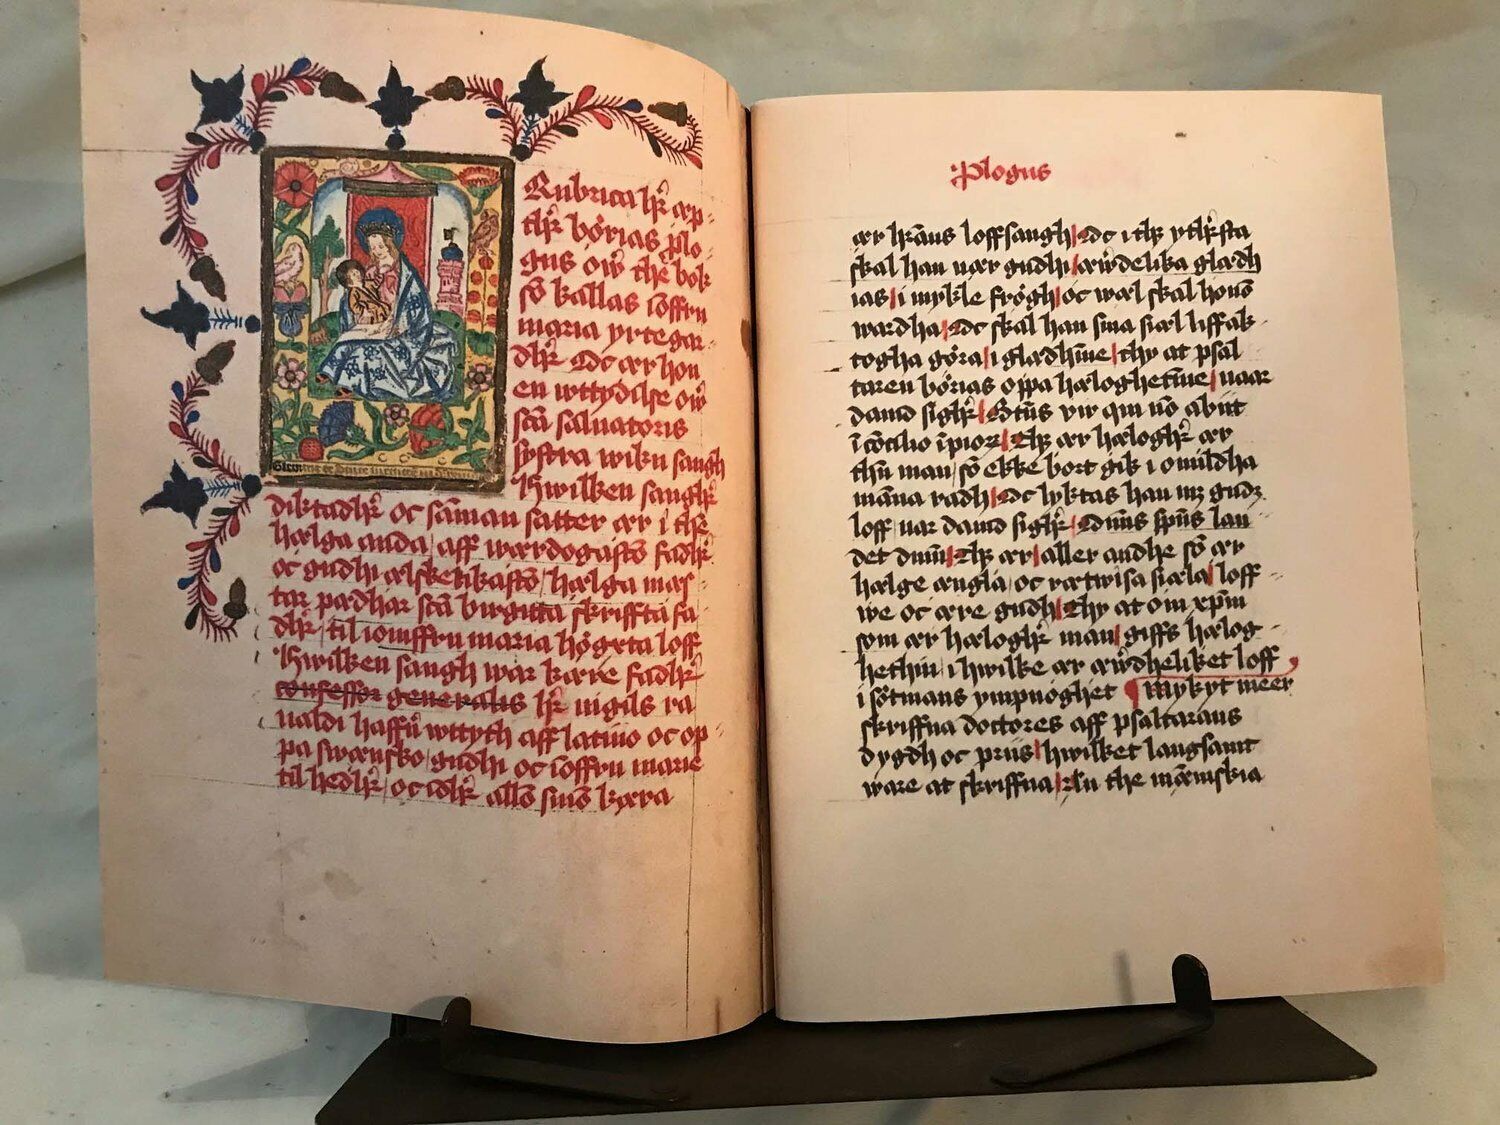 Rubrica hr æp
thr börias plo
gus ow the bok
so kallas ioffru
maria yrtegar
dhr Oc ær hon
en wttydilse ow
sca saluatoris
systra wiku sangh
Hwilken sanghr
diktadhr oc saman satter ær i the
hælga anda aff wærdogasts fadhr
oc gudhi ælskelikasts hælga mas
tar pædhar sca birgitta skriffta fa
dhr til iomffru maria högxta loff
Hwilken sangh war kære fadhr
confessor generalis hr nigils ra
ualdi haffu wttyth aff latino oc op
pa swænsko gudhi oc ioffru marie
til hedhr oc idhr allo sino kæra
Plogus
ær hrans loffsangh Oc i thz ythrsta
skal han uær gudhi æwrdelika glædh
ias i mykle frögh oc wæl skal hono
wardha Oc skal han sina siæl liffak
togha göra i glædhine thy at psal
taren börias oppa hæloghetine uaar
dauid sighr Btus vir qui no abiit
i cocilio ipior Thz ær hæloghr ær
thn man so ekke bort gik i omildha
manna radh Oc lyktas han mz gudz
loff uar dauid sighr Omis spus lau
det dnm Thz ær aller andhe so ær
hælge ængla oc rætwisa siæla loff
we oc ære gudh Thy at om xpm
som ær hæloghr man giffs hælog
hethin i hwilke ær æwrdheliket loff
i sötmans ympnoghet Mykyt meer
skriffua doctores aff psaltarans
dygdh oc priis hwilket langsamt
ware at skriffua Nu the mænniskia